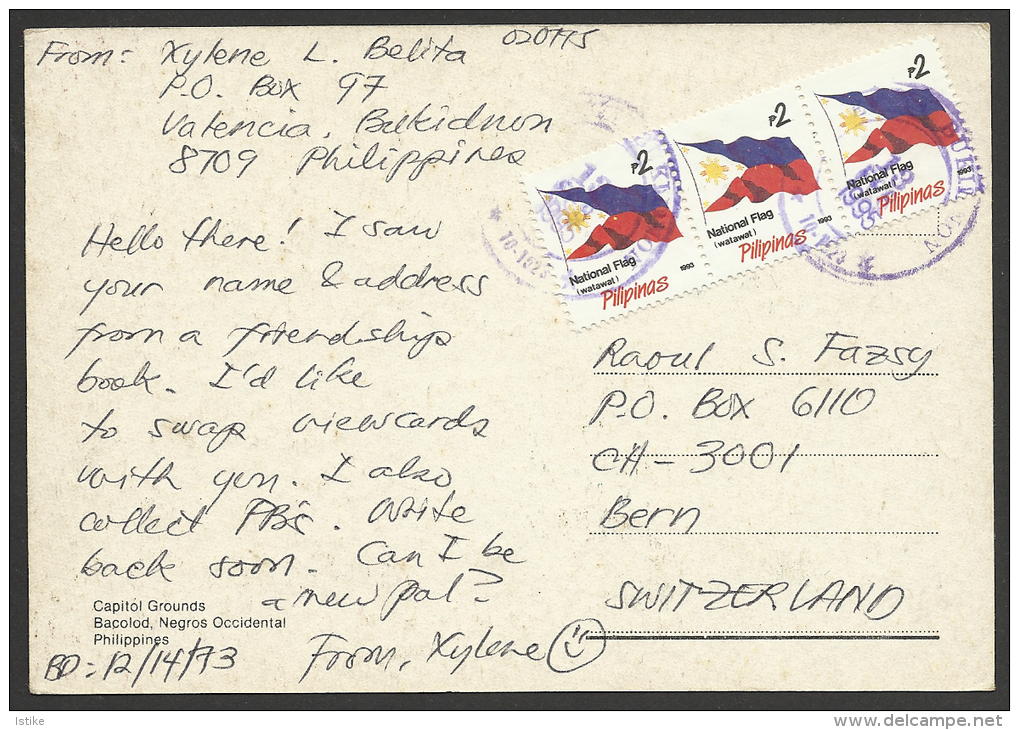 From: Xylene L. Belita
P.O. Box 97
Valencia, Bukidnon
8709 Philippines
Hello there! I saw
your name & address
from a friendship
book. I'd like
to swap viewcards
with you. I also
collect FBs. Write
back soon. Can I be
a new pal?
From, Xylene
Capitol Grounds
Bacolod, Negros Occidental
Philippines
BD: 12/14/73
₱2
National Flag
(watawat)
1993
Pilipinas
₱2
National Flag
(watawat)
1993
Pilipinas
₱2
National Flag
(watawat)
1993
Pilipinas
Raoul S. Fazsy
P.O. Box 6110
CH-3001
Bern
SWITZERLAND
Istike
http://www.delcampe.net